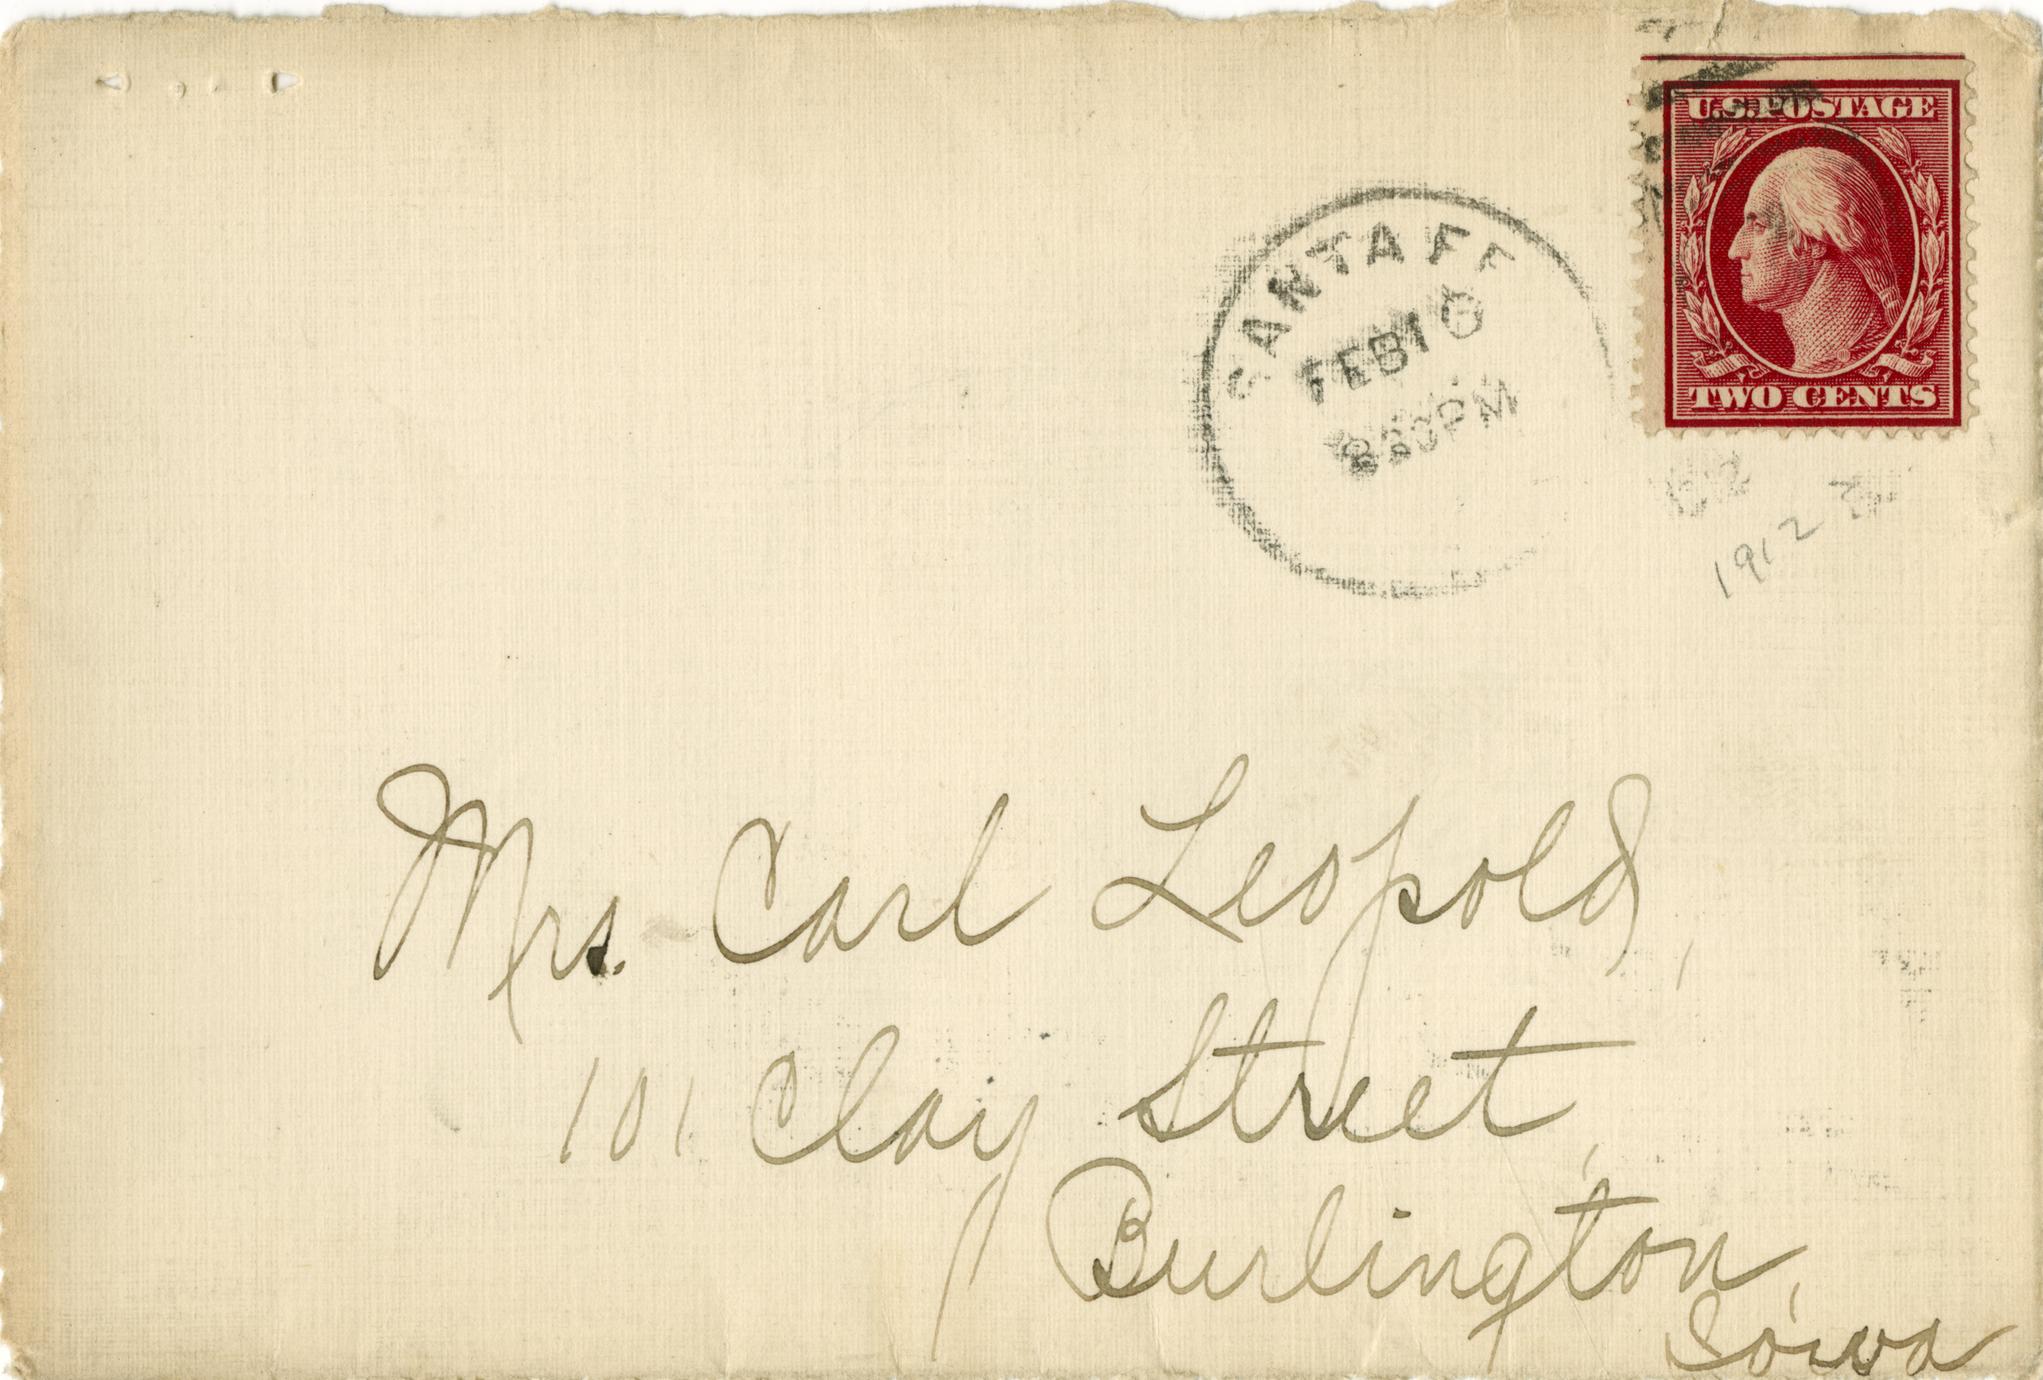 U.S. POSTAGE
TWO CENTS
SANTA FE
FEB 16
8 30 PM
1912
Mrs. Carl Leopold,
101 Clay Street,
Burlington,
Iowa